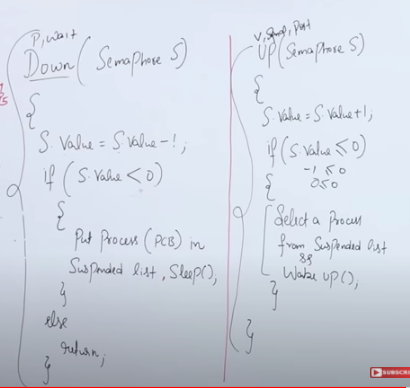 P, Wait
Down (Semaphore S)
{
S.Value = S.Value - 1;
if (S.Value < 0)
{
Put Process (PCB) in
Suspended list, Sleep();
}
else
return;
}
V, Signal, Post
UP (Semaphore S)
{
S.Value = S.Value + 1;
if (S.Value ≤ 0)
-1 ≤ 0
{ 0 ≤ 0
Select a Process
from Suspended list
Wake UP();
}
}
SUBSCRI